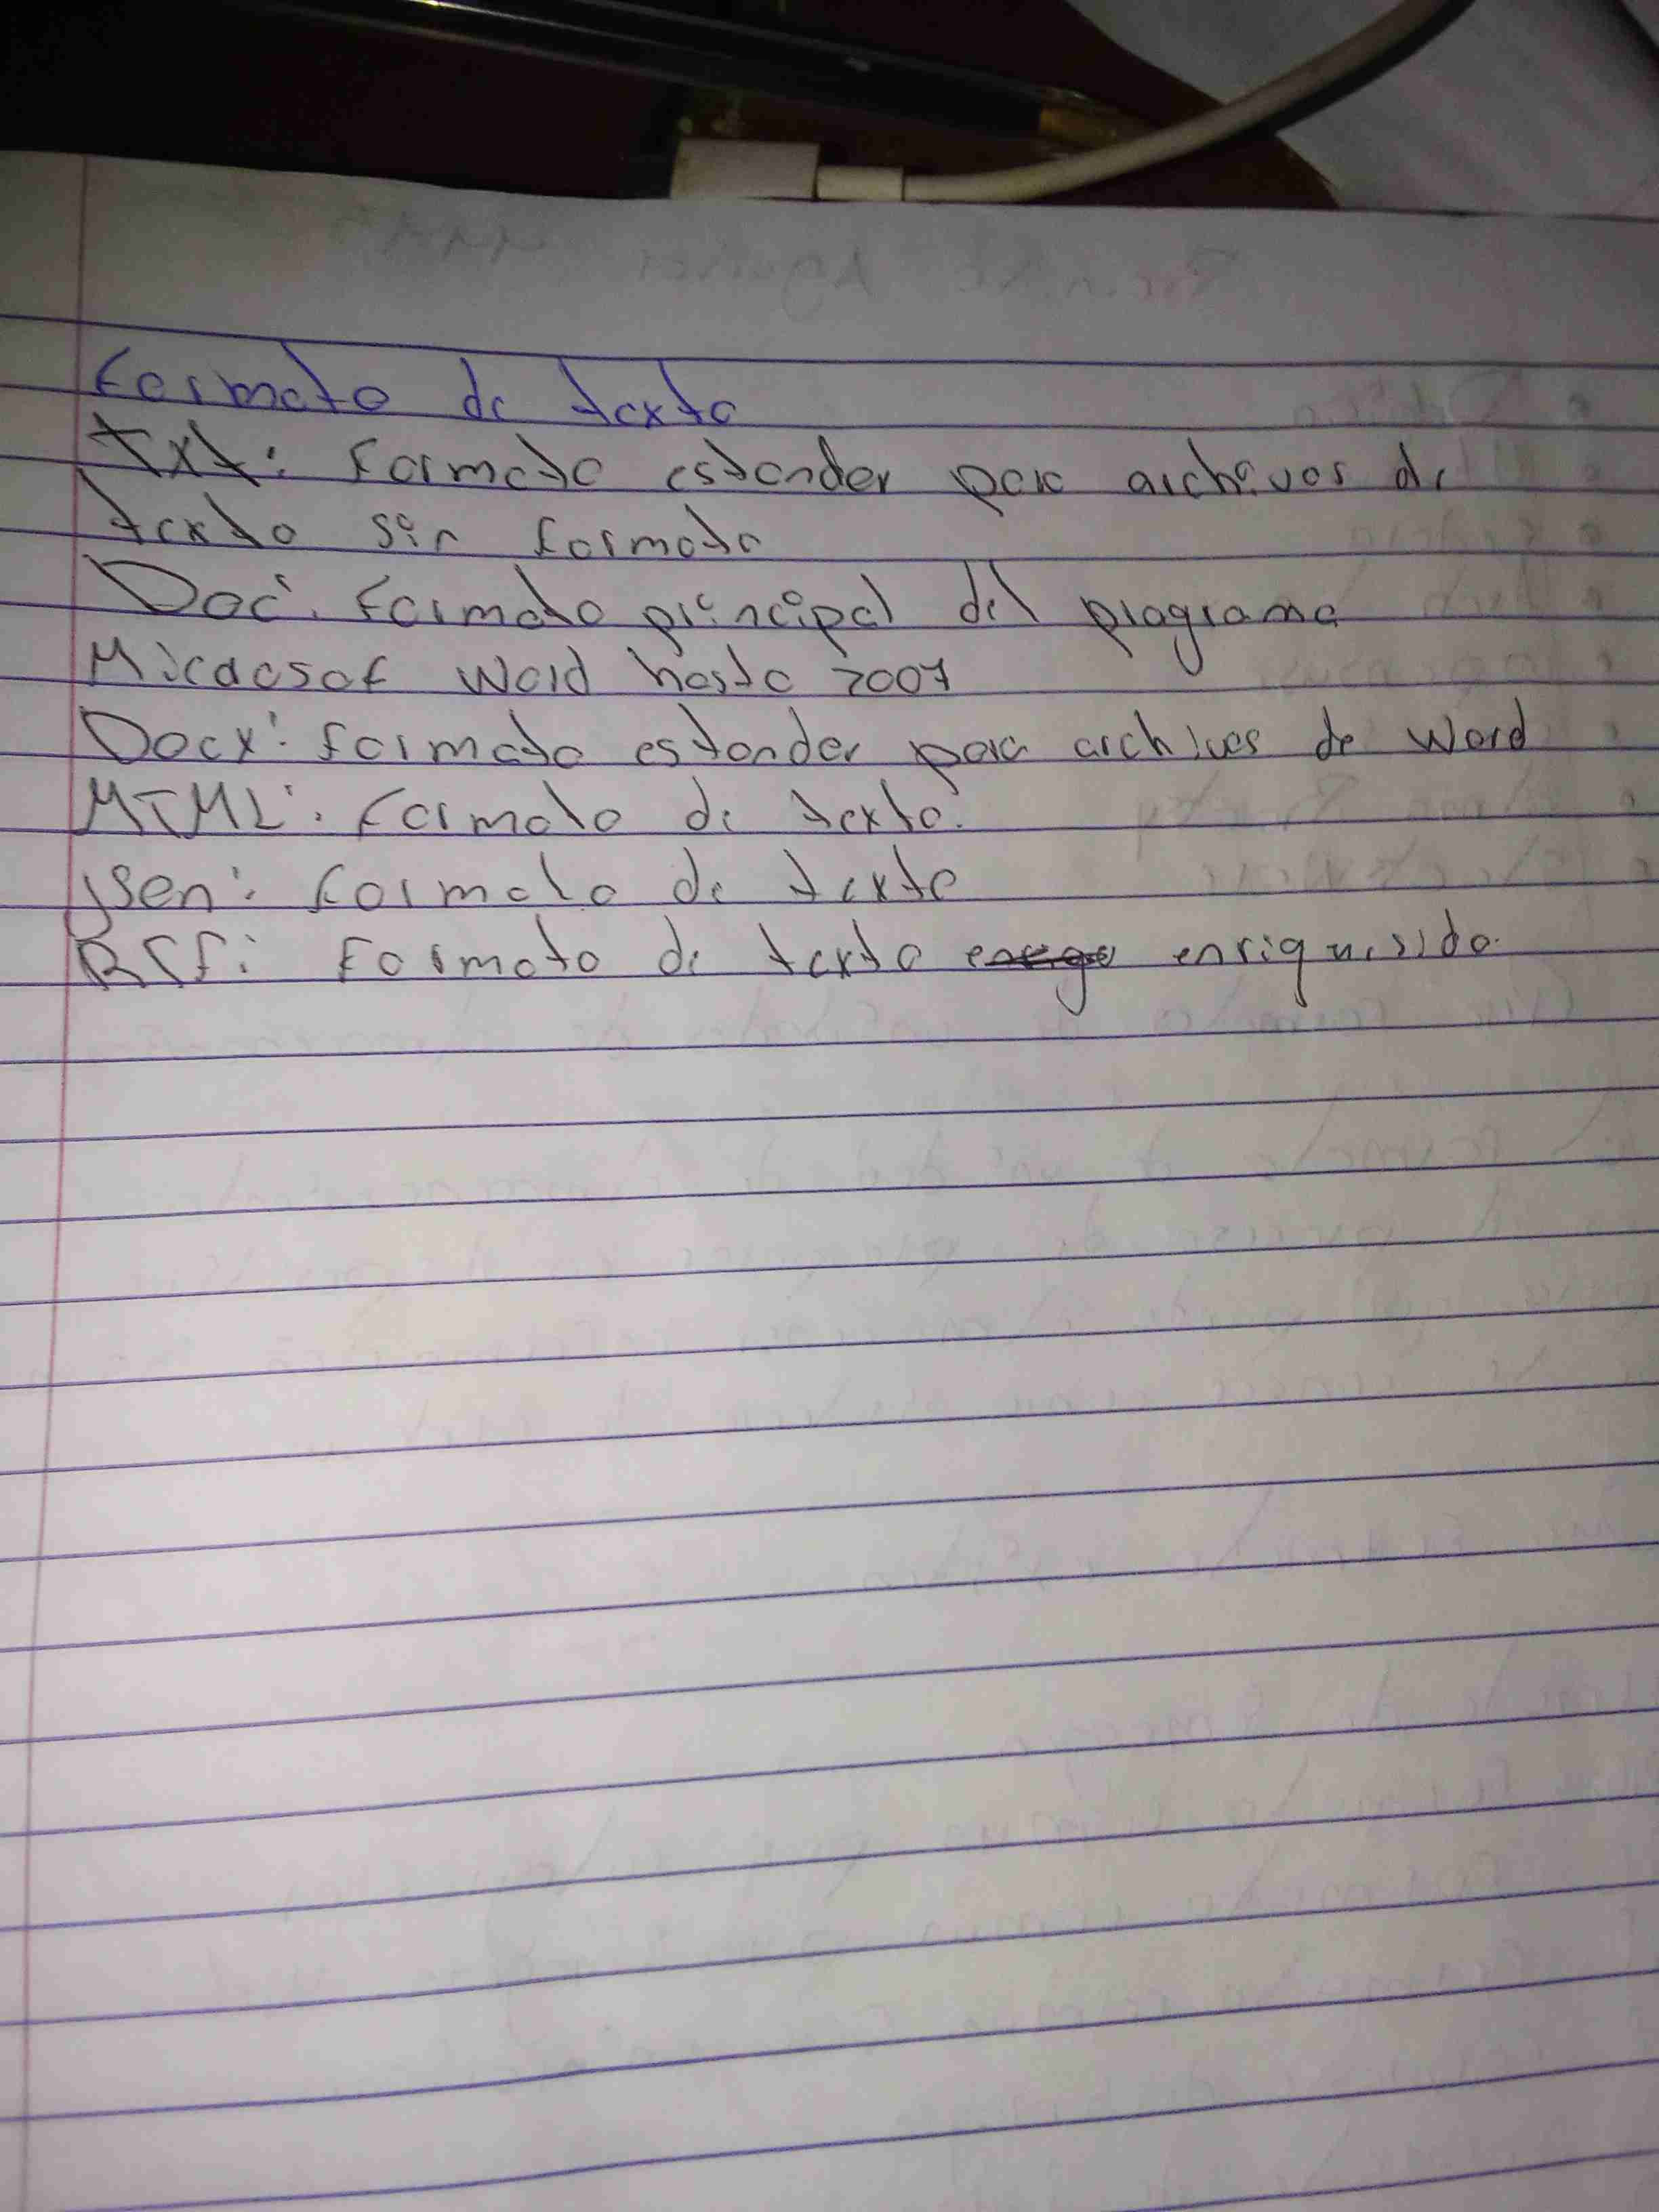 Formato de texto
txt: Formato estander para archivos de
texto sin formato
Doc: Formato principal del programa
Micaosof Word hasta 2007
Docx: formato estander para archivos de Word
MTML: Formato de texto.
jsen: formato de texto
Rff: Formato de texto enriquisido.